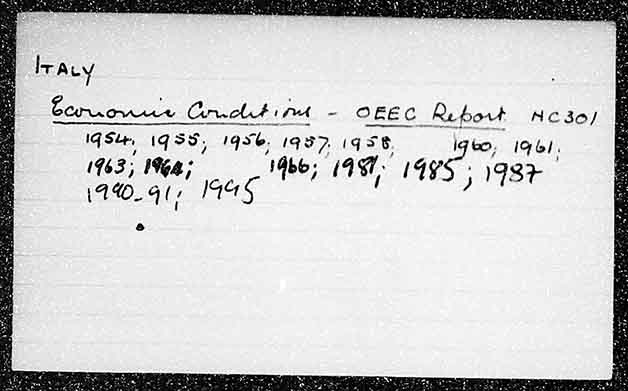 ITALY
Economic Conditions - OEEC Report HC301
1954; 1955; 1956; 1957; 1958; 1960; 1961;
1963; 1964; 1966; 1981; 1985; 1987
1990-91; 1995